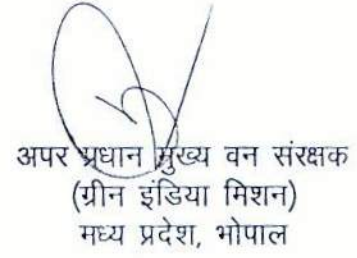 अपर प्रधान मुख्य वन संरक्षक
(ग्रीन इंडिया मिशन)
मध्य प्रदेश, भोपाल